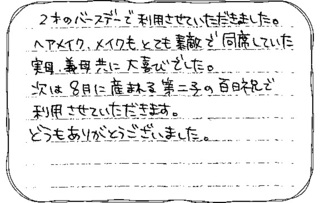 2才のバースデーで利用させていただきました。
ヘアメイク、メイクもとても素敵で同席していた
実母、義母共に大喜びでした。
次は8月に産まれる第二子の百日祝で
利用させていただきます。
どうもありがとうございました。